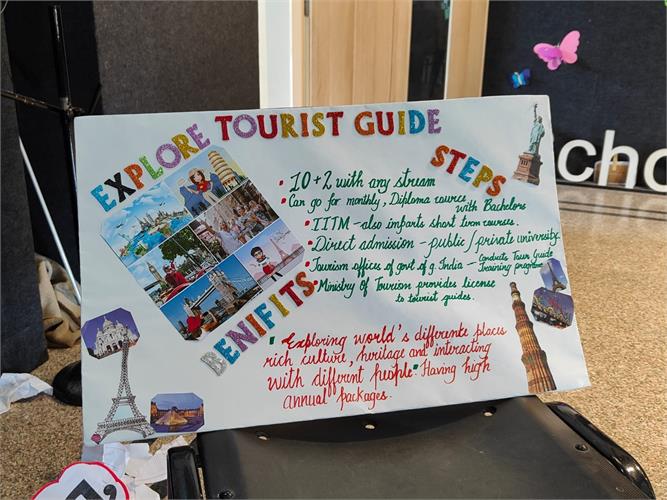 EXPLORE TOURIST GUIDE
STEPS
• 10+2 with any stream
• Can go for monthly, Diploma cource
with Bachelors
• IITM - also imparts short term cources.
• Direct admission - public / private university.
• Tourism offices of govt of g. India - Conducts Tour Guide
Training programe
• Ministry of Tourion provides license
to tourist guides.
BENIFITS
Exploring world's differente places
rich culture, heritage and interacting
with different people. Having high
annual packages.
cho